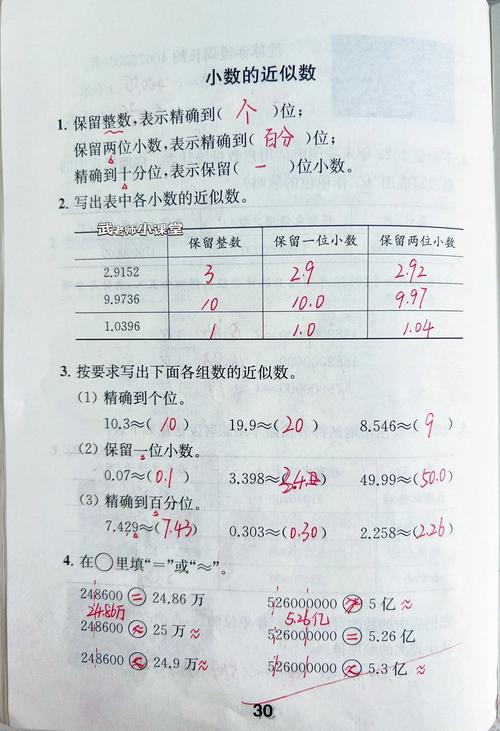 小数的近似数
1. 保留整数,表示精确到( 个 )位;
保留两位小数,表示精确到( 百分 )位;
精确到十分位,表示保留( 一 )位小数。
2. 写出表中各小数的近似数。
武老师小课堂 保留整数 保留一位小数 保留两位小数
2.9152 3 2.9 2.92
9.9736 10 10.0 9.97
1.0396 1 1.0 1.04
3. 按要求写出下面各组数的近似数。
(1) 精确到个位。
10.3≈( 10 ) 19.9≈( 20 ) 8.546≈( 9 )
(2) 保留一位小数。
0.07≈( 0.1 ) 3.398≈( 3.4 ) 49.99≈( 50.0 )
(3) 精确到百分位。
7.429≈( 7.43 ) 0.303≈( 0.30 ) 2.258≈( 2.26 )
4. 在○里填“=”或“≈”。
248600 = 24.86 万 526000000 ≈ 5 亿 ≈
24.86万 5.26亿
248600 ≈ 25 万 ≈ 526000000 = 5.26 亿
248600 ≈ 24.9 万 ≈ 526000000 ≈ 5.3 亿 ≈
30